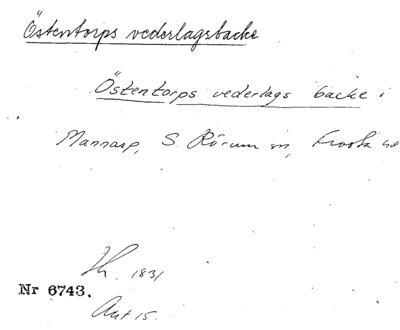 Östentorps vederlagsbacke
Östentorps vederlags backe i
Mannarp, S. Rörum sn, Frosta hd
1831
Nr 6743.
Akt 15.